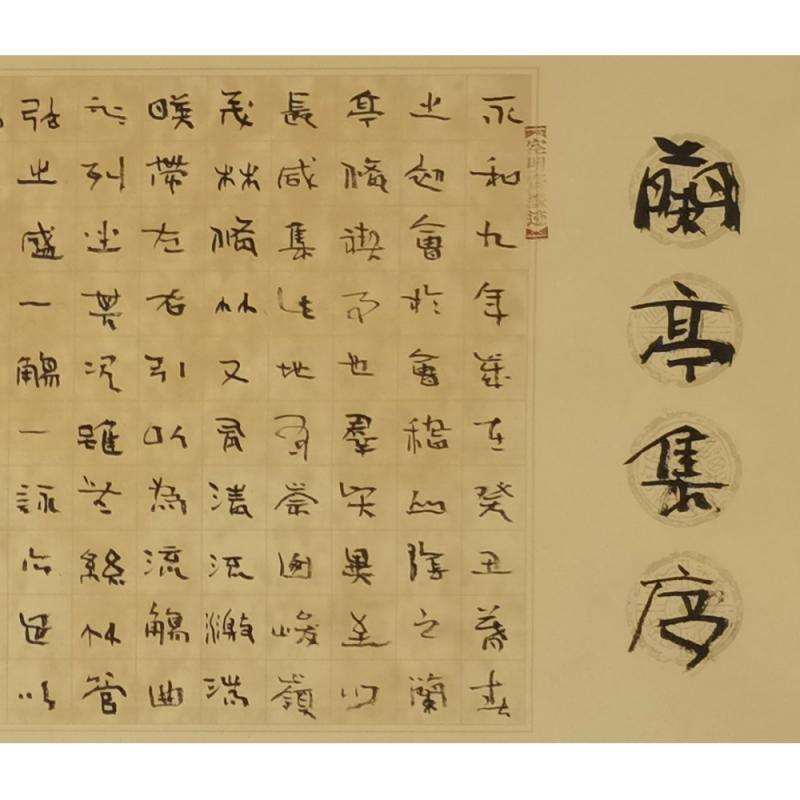 蘭亭集序
永和九年歲在癸丑暮春
之初會於會稽山陰之蘭
亭脩禊事也羣賢畢至少
長咸集此地有崇山峻嶺
茂林脩竹又有清流激湍
暎帶左右引以為流觴曲
水列坐其次雖無絲竹管
弦之盛一觴一詠亦足以